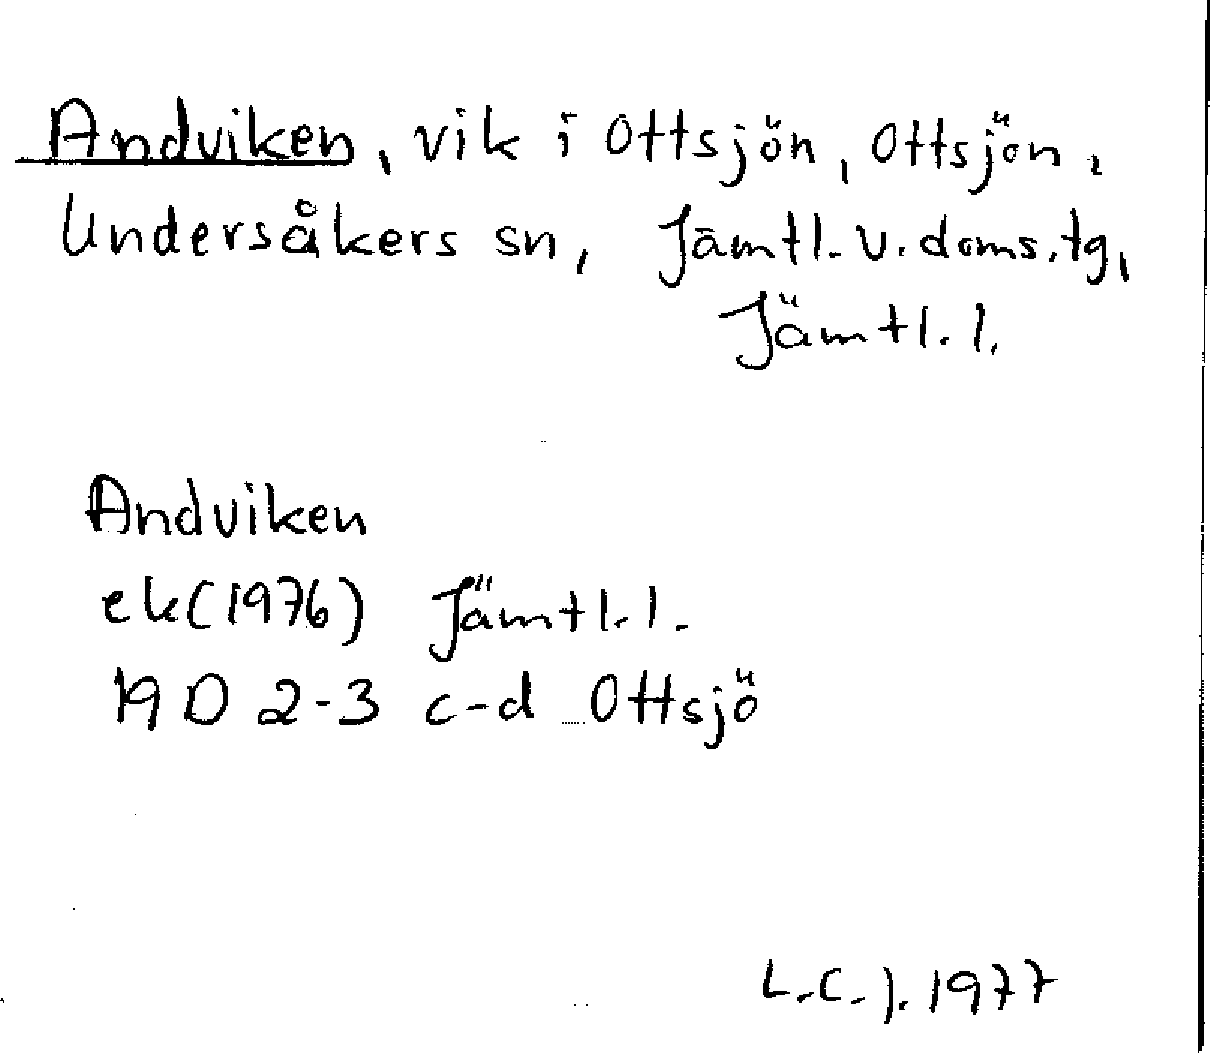 Andviken, vik i Ottsjön, Ottsjön,
Undersåkers sn, Jämtl. v. doms. tg,
Jämtl. l.
Andviken
ek (1976) Jämtl. l.
19 D 2-3 c-d Ottsjö
L.C.J. 1977